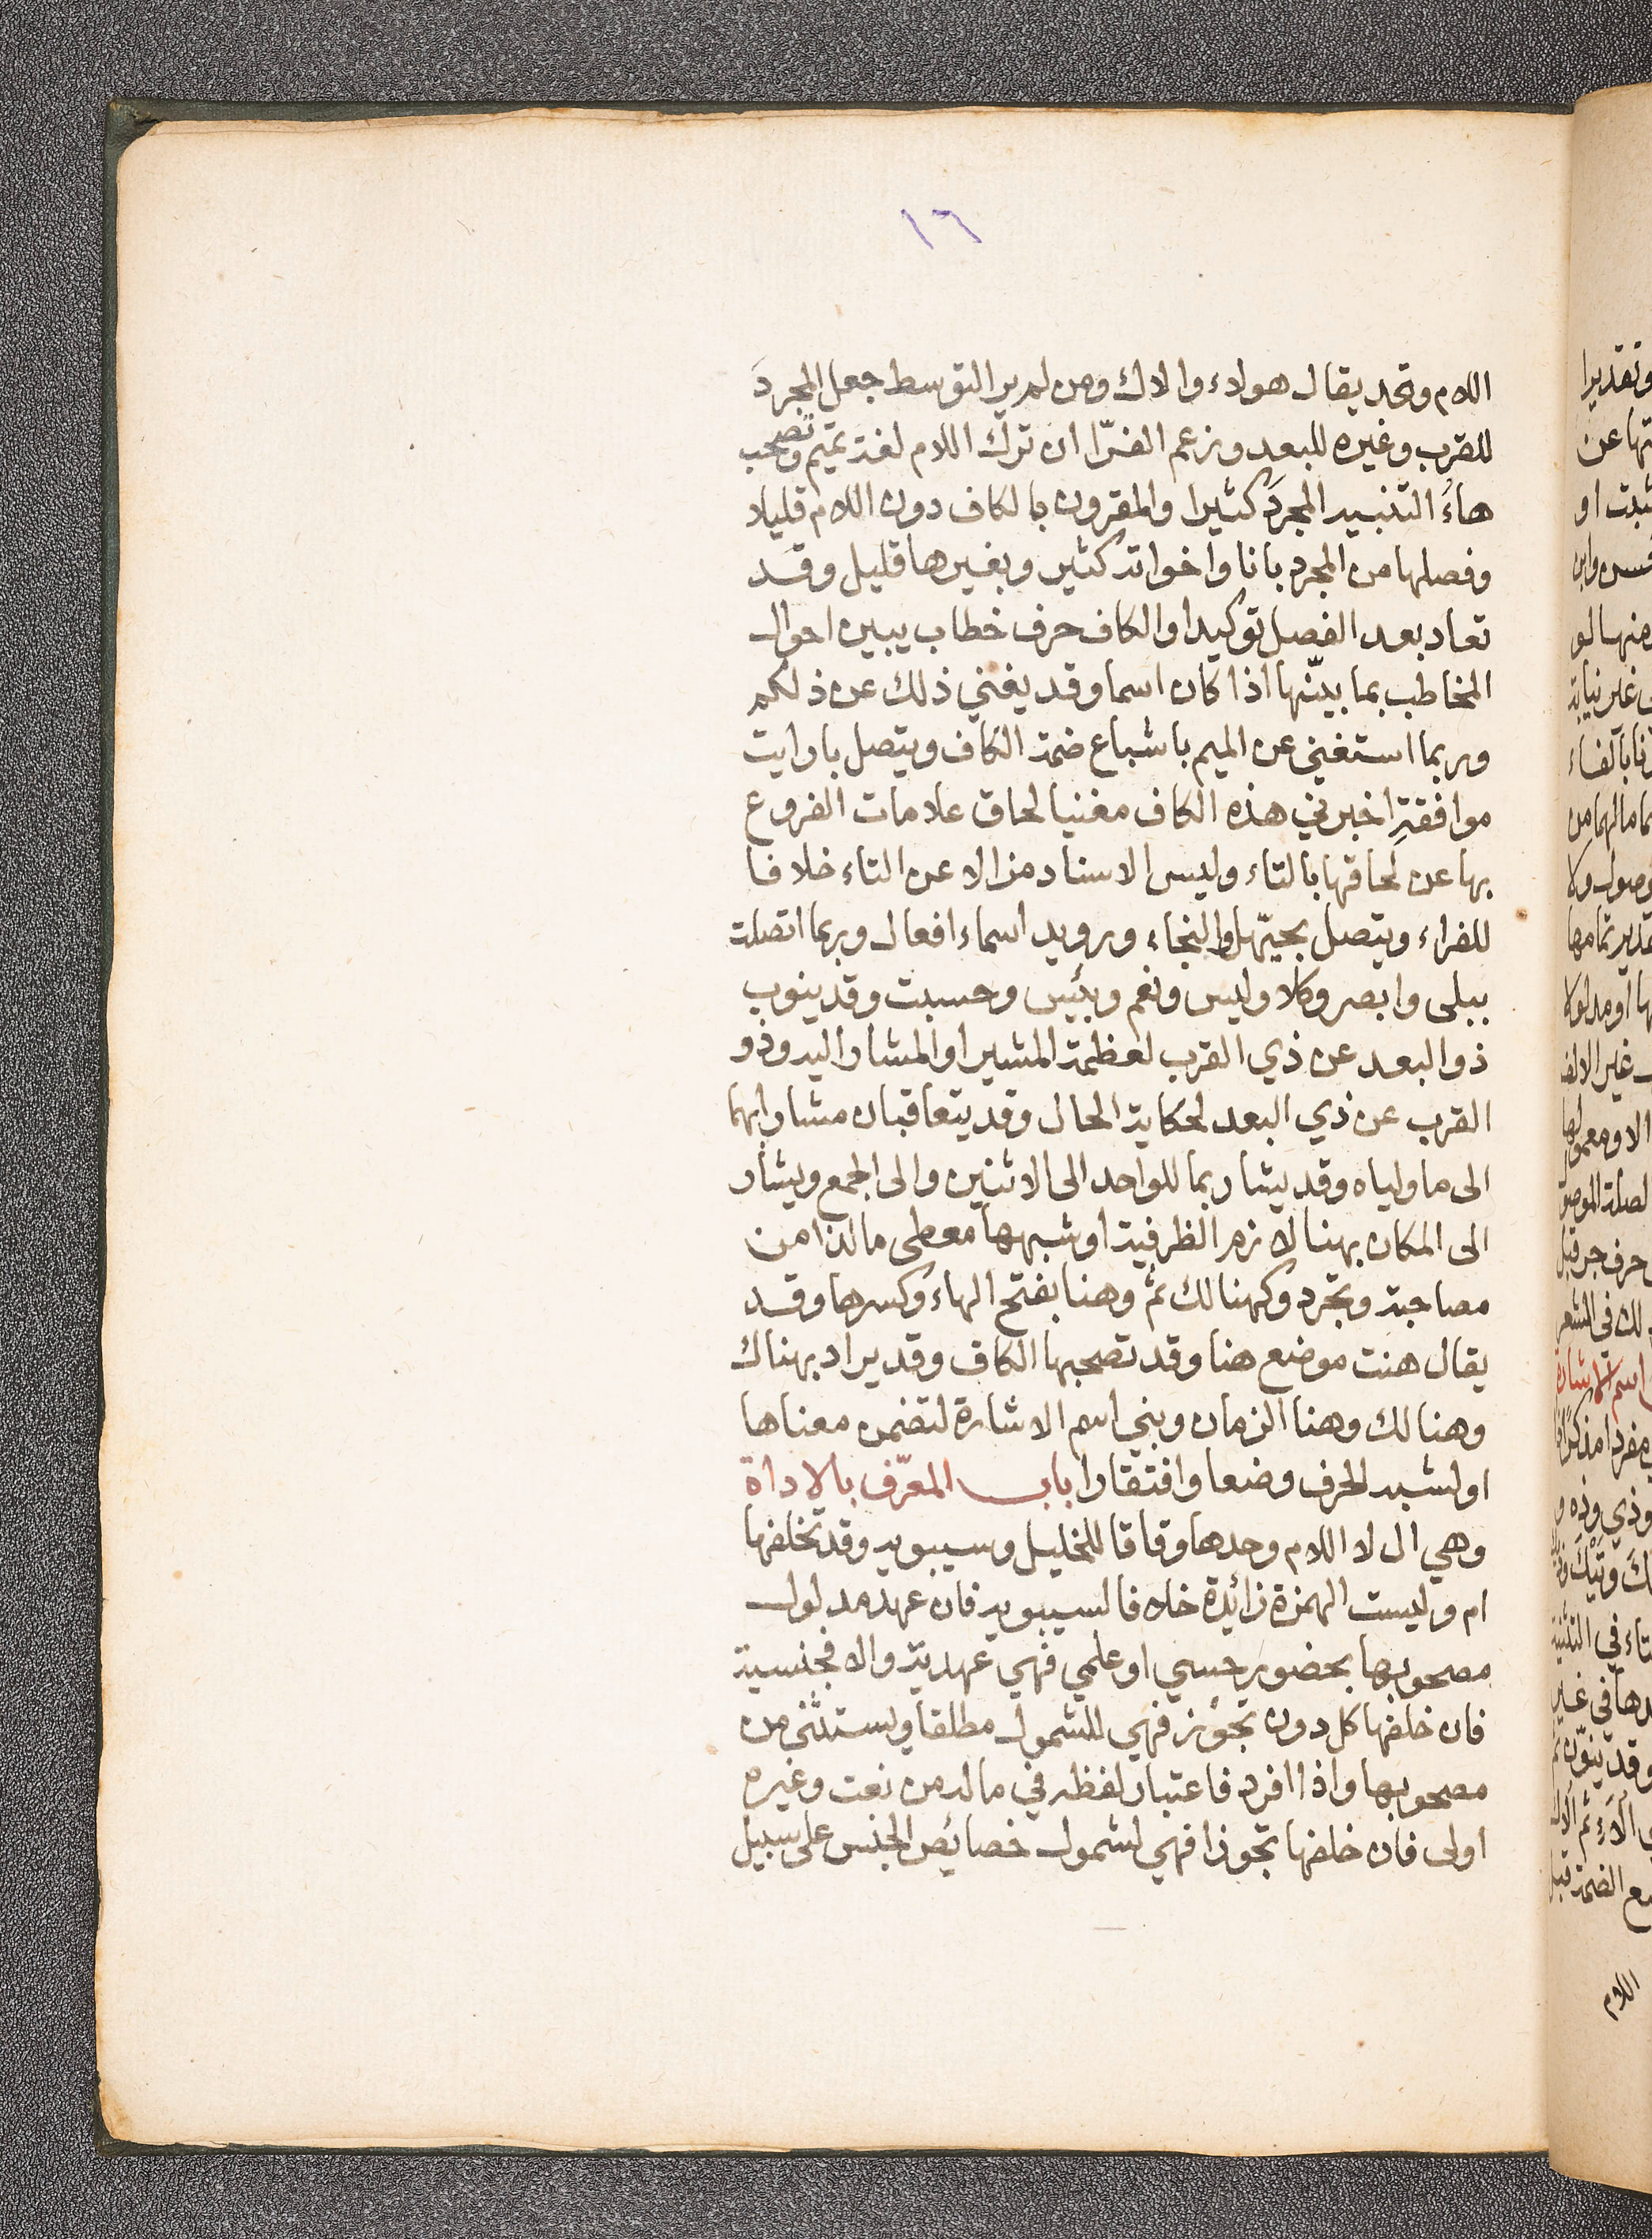 ١٦
اللام وقد يقال هولاء والاك ومن لم ير التوسط جعل المجرد
للقرب وغيره للبعد وزعم الفرّا ان ترك اللام لغة تميم وتصحب
هاءُ التنبيه المجردَ كثيرا والمقرون بالكاف دون اللام قليلا
وفصلها من المجرد بانا واخواته كثير وبغيرها قليل وقد
تعاد بعد الفصل توكيدا والكاف حرف خطاب يبين احوال
المخاطب بما بيّنها اذا كان اسما وقد يغني ذلك عن ذلكم
وربما استغني عن الميم باشباع ضمة الكاف ويتصل بارايت
موافقةِ اخبرني هذه الكاف مغنيا لحاق علامات الفروع
بها عن لحاقها بالتاء وليس الاسناد مزالا عن التاء خلافا
للفراء ويتصل بحيّهل والنجاء ورويد اسماء افعال وربما اتصلت
ببلى وابصر وكلا وليس ونعم وبئس وحسبت وقد ينوب
ذو البعد عن ذي القرب لعظمة المشير او المشار اليه وذو
القرب عن ذي البعد لحكاية الحال وقد يتعاقبان مشارا بهما
الى ما ولياه وقد يشار بما للواحد الى الاثنين والى الجمع ويشار
الى المكان بهنا لازم الظرفية او شبهها معطى ما لذا من
مصاحبة وتجرد وكهنالك ثم وهنا بفتح الهاء وكسرها وقد
يقال هنت موضع هنا وقد تصحبها الكاف وقد يراد بهناك
وهنالك وهنا الزمان وبني اسم الاشارة لتضمن معناها
او لشبه الحرف وضعا وافتقارا باب المعرّف بالاداة
وهي ال لا اللام وحدها وفاقا للخليل وسيبويه وقد تخلفها
ام وليست الهمزة زائدة خلافا لسيبويه فان عهد مدلول
مصحوبها بحضور حسي او علمي فهي عهدية والا فجنسية
فان خلفها كل دون تجوز فهي للشمول مطلقا ويستثنى من
مصحوبها واذا افرد فاعتبار لفظه في ماله من نعت وغيره
اولى فان خلفها تجوزا فهي لشمول خصائص الجنس على سبيل